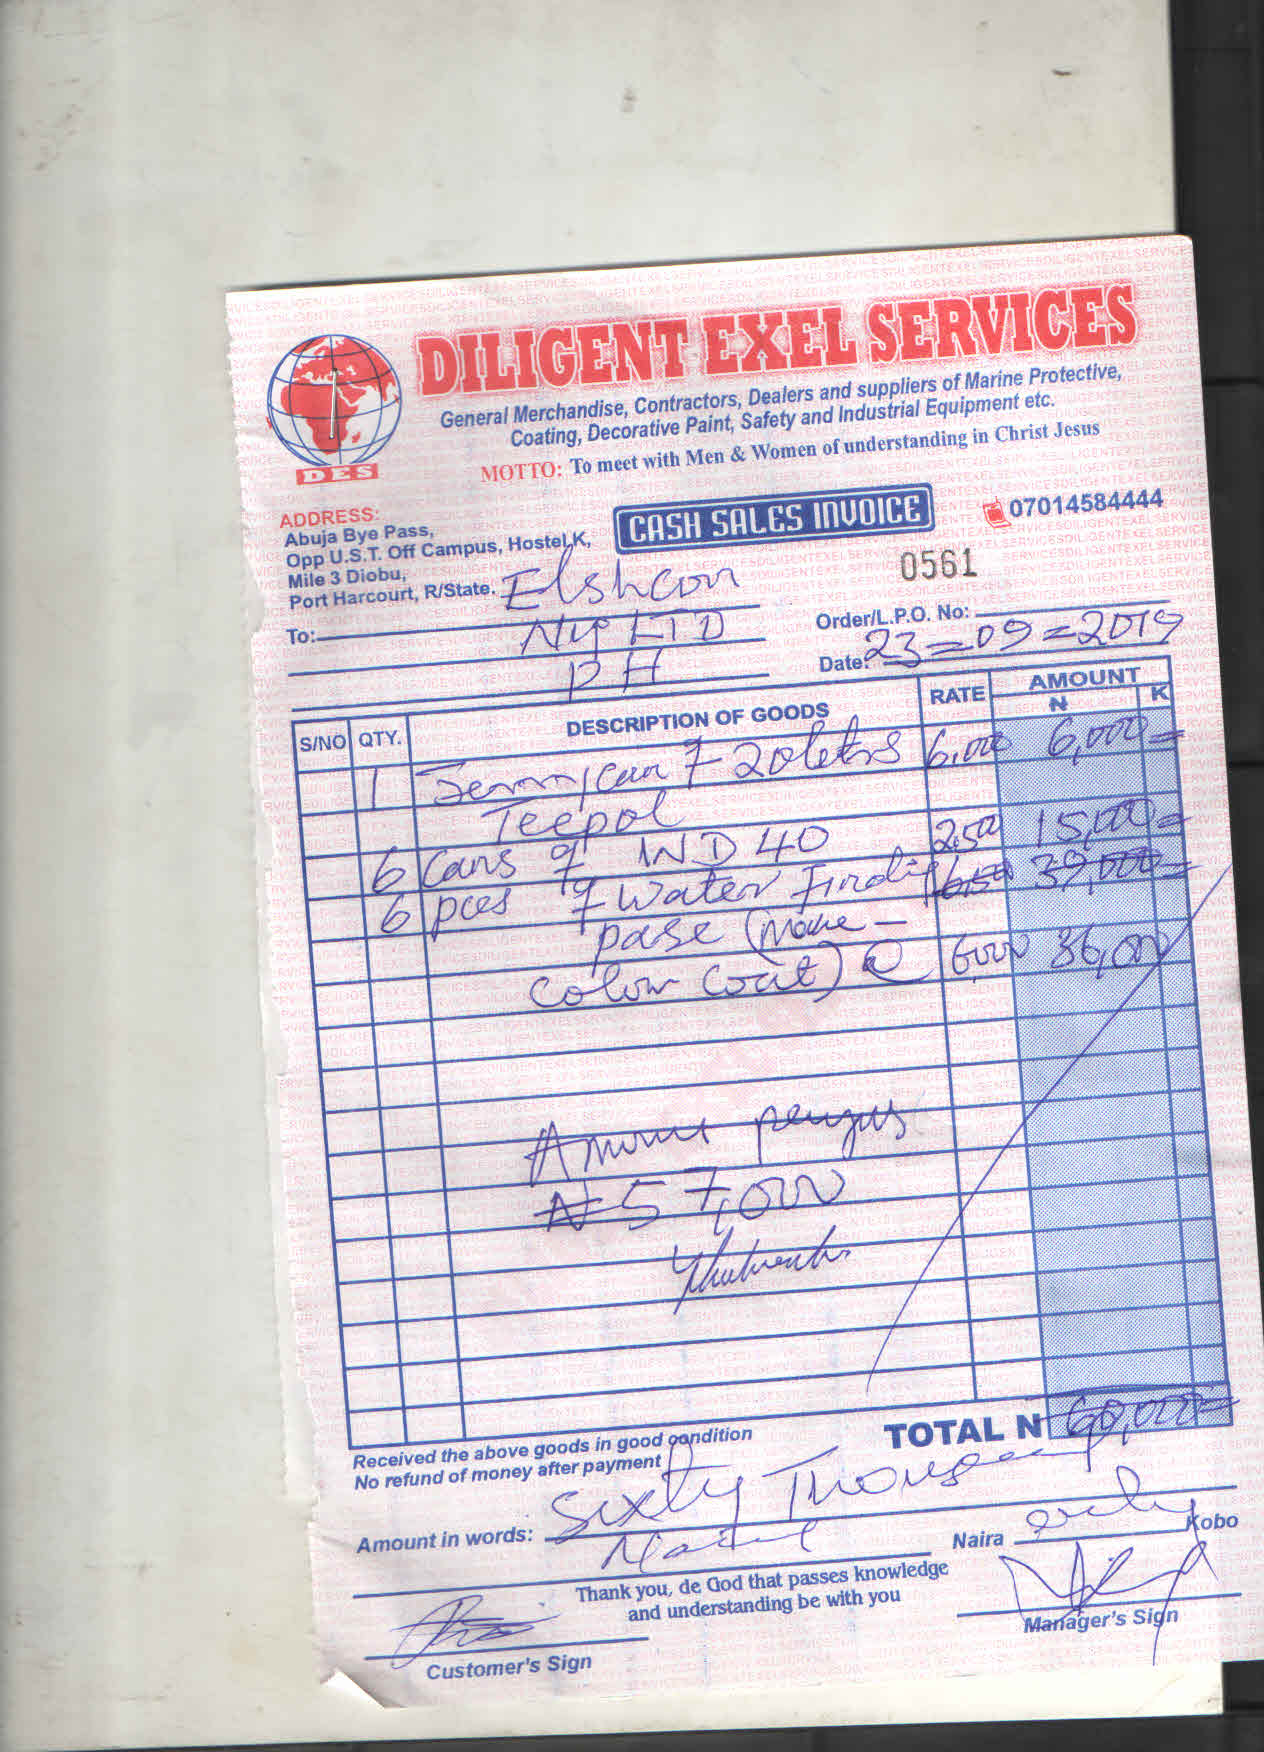 DILIGENT EXEL SERVICES
General Merchandise, Contractors, Dealers and suppliers of Marine Protective,
Coating, Decorative Paint, Safety and Industrial Equipment etc.
MOTTO: To meet with Men & Women of understanding in Christ Jesus
DES
ADDRESS:
Abuja Bye Pass,
Opp U.S.T. Off Campus, Hostel K,
Mile 3 Diobu,
Port Harcourt, R/State.
CASH SALES INVOICE
07014584444
0561
To: Elshcon
Nig LTD
PH
Order/L.P.O. No:
Date: 23=09=2019
S/NO QTY. DESCRIPTION OF GOODS RATE AMOUNT
N K
1 Jerrycan of 20letrs 6,000 6,000=
Teepol
6 Cans of WD 40 2500 15,000=
6 pces of Water Finding 6,500 39,000=
pase
Colour Coat) @ 6000 36,000
Amount
₦57,000
TOTAL N 60,000=
Received the above goods in good condition
No refund of money after payment
Amount in words: Sixty Thousand
Naira only Kobo
Thank you, de God that passes knowledge
and understanding be with you
Customer's Sign
Manager's Sign